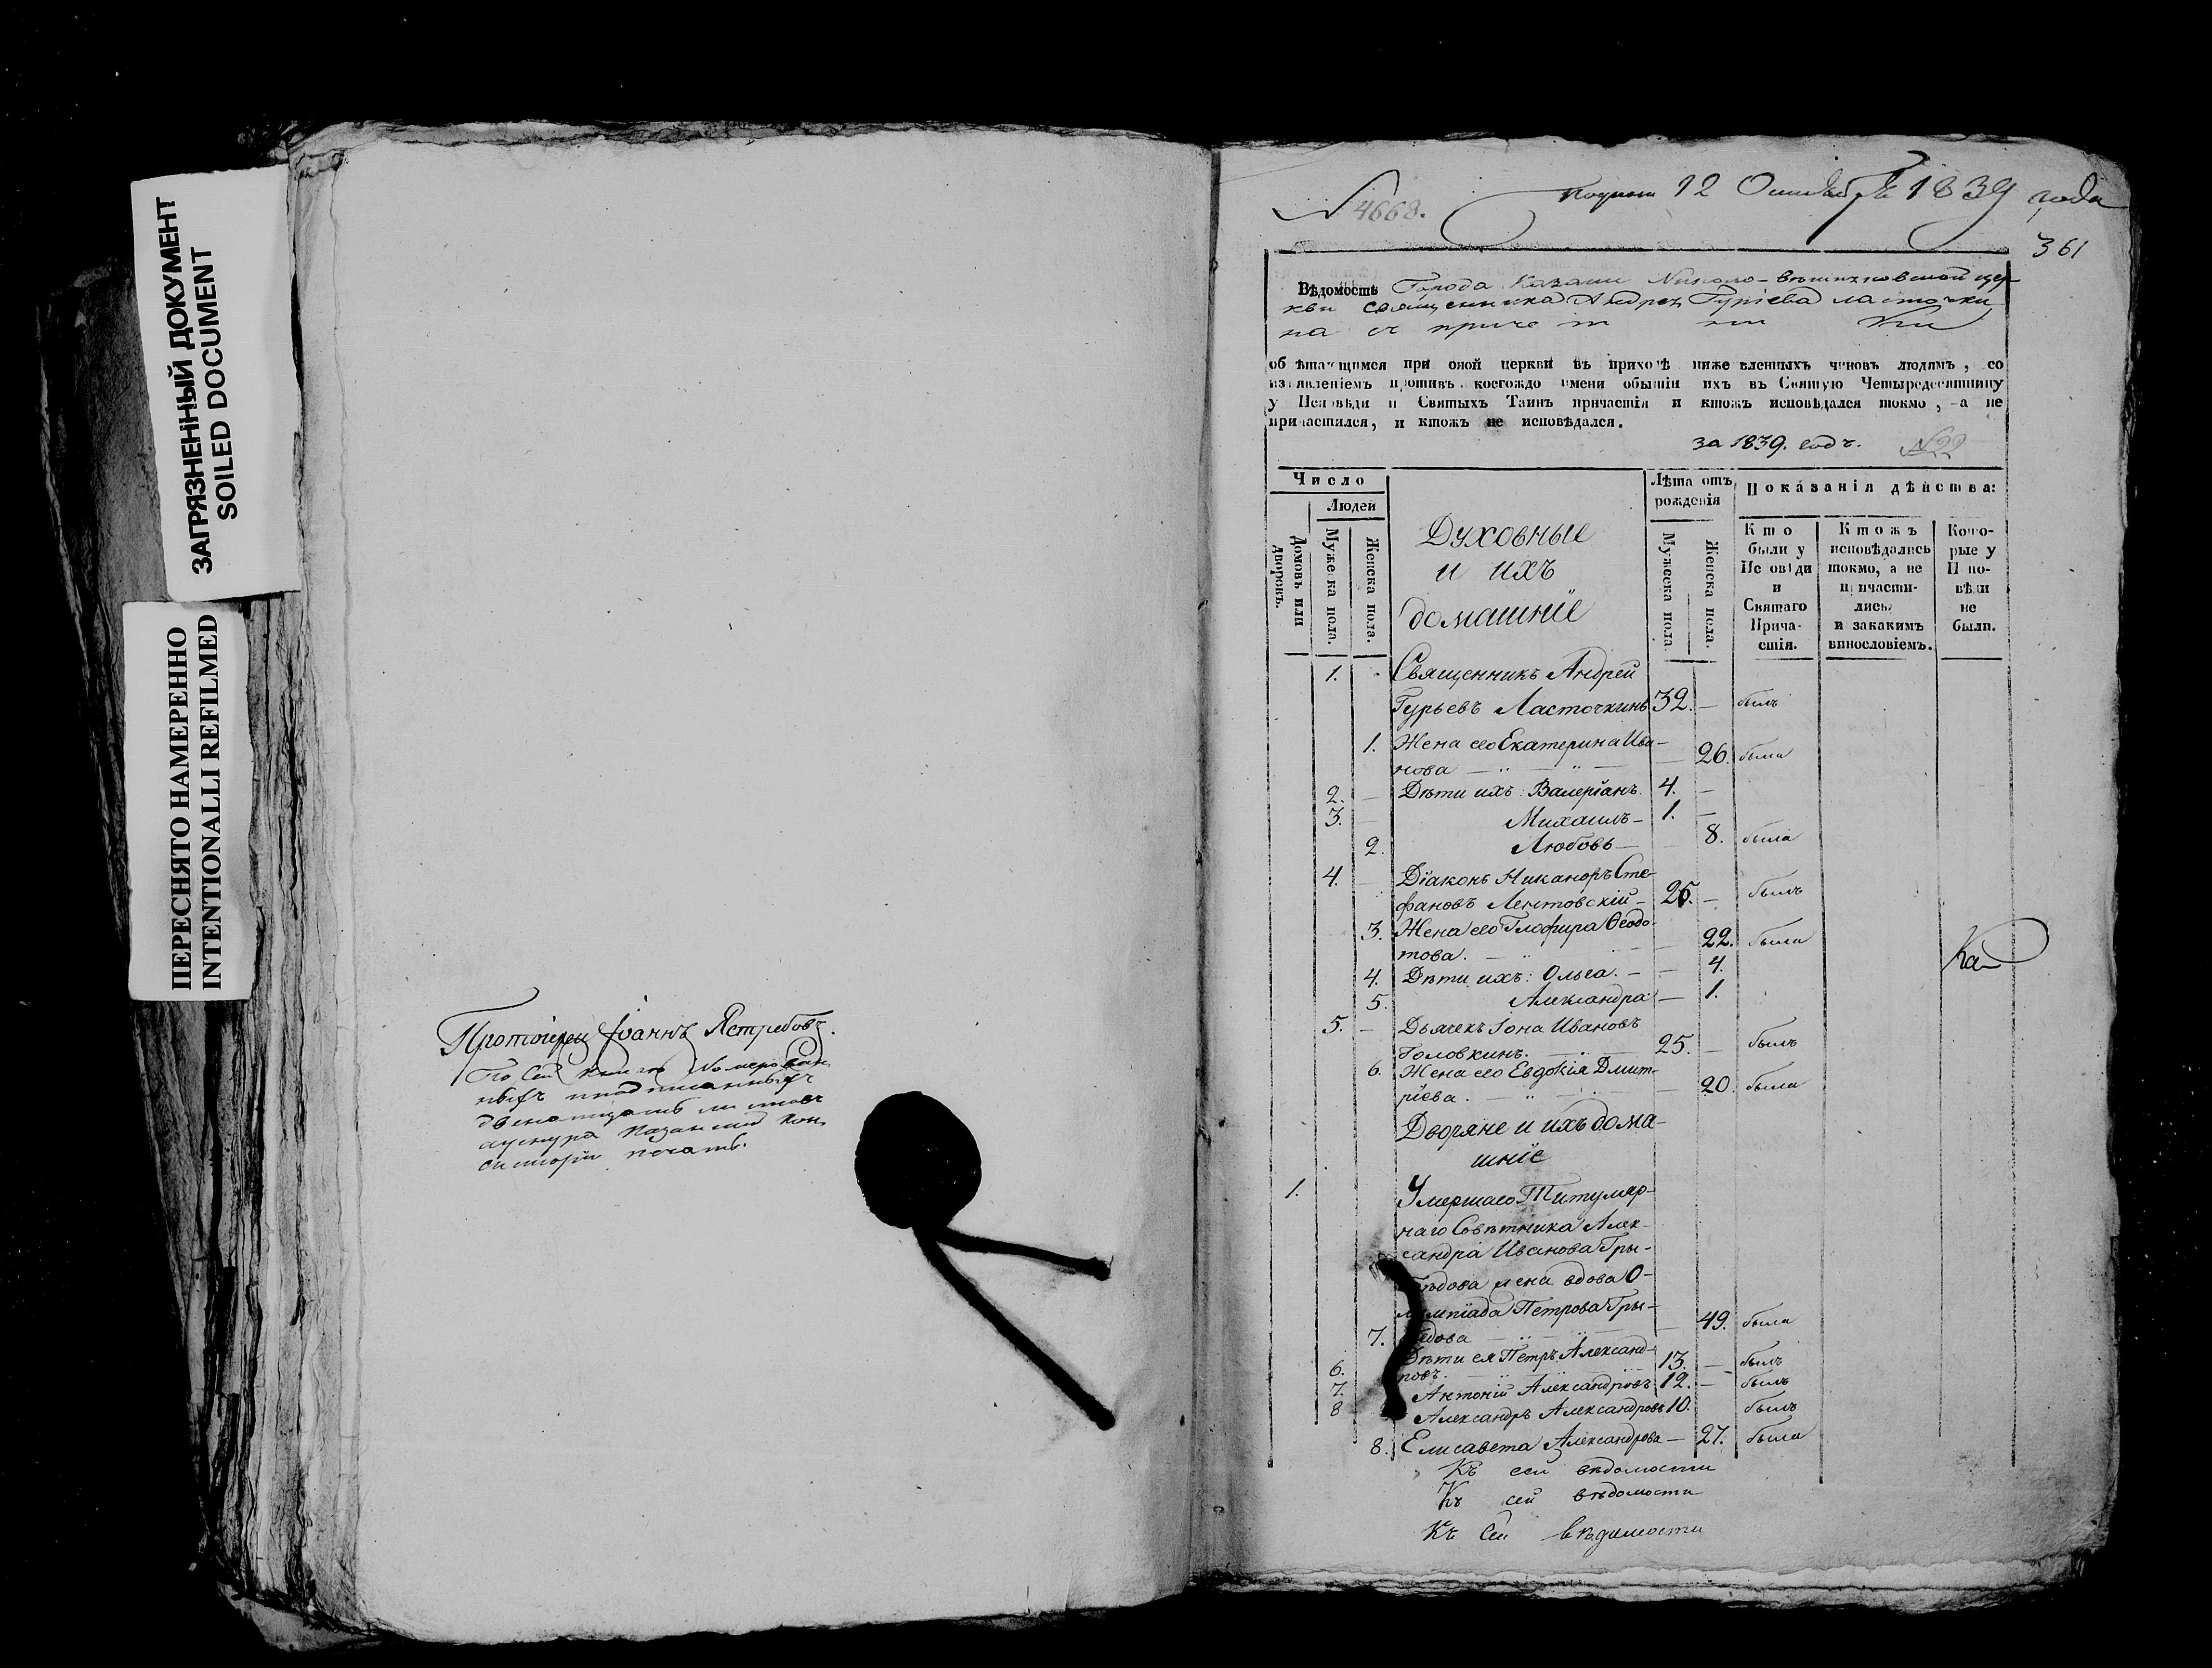 ЗАГРЯЗНЕННЫЙ ДОКУМЕНТ
SOILED DOCUMENT
ПЕРЕСНЯТО НАМЕРЕННО
INTENTIONALLI REFILMED
Протоіерей Іоаннъ Ястребовъ.
По сей книге номерован
ныхъ и подписанныхъ
двенатцать листовъ
Казанской Кон
систоріи печать.
N 4668.
12 Октября 1839 года
361
Вѣдомость Города Казани Николо-
кви священника Андрея Гуріева Ласточки
на съ причетни ки
обрѣтающимся при оной церкви въ приходѣ ниже вленныхъ чиновъ людямъ, со
изъявленіемъ противъ коегождо имени бытіи ихъ въ Святую Четыредесятницу
у Исповѣди и Святыхъ Таинъ причастія и ктожъ исповѣдался токмо, а не
причастился, и ктожъ не исповѣдался.
за 1839. годъ. N22
Число
Людей
Домовъ или дворовъ.
Мужеска пола.
Женска пола.
Духовные
и ихъ
домашніе
Лѣта отъ рожденія
Мужеска пола
Женска пола.
Показанія дѣйства:
Кто были у Исповѣди и Святаго Причастія.
Ктожъ исповѣдались токмо, а не причастились и закакимъ винословіемъ.
Которые у Исповѣди не были.
1. Священникъ Андрей
Гурьевъ Ласточкинъ 32. — былъ
1. Жена его Екатерина Ива-
нова — 26. была
2. — Дѣти ихъ: Валеріанъ. 4. —
3. — Михаилъ — 1. —
2. Любовь — 8. была
4. — Діаконъ Никаноръ Сте-
фановъ Лентовскій — 25. — былъ
3. Жена его Глафира Ѳеодо-
това. — 22. была
Ка
4. Дѣти ихъ: Ольга. — 4.
5. Александра — 1.
5. — Дьячекъ Іона Ивановъ
Головкинъ. 25. — былъ
6. Жена его Евдокія Дмит-
ріева. — 20. была
Дворяне и ихъ дома-
шніе
1. Умершаго Титуляр-
наго Совѣтника Алек-
сандра Иванова Гры-
бѣдова жена вдова О-
лимпіада Петрова Гры-
7. бѣдова — 49. была
6. Дѣти ея Петръ Александ-
ровъ. 13. — былъ
7. Антоній Александровъ 12. — былъ
8 Александръ Александровъ 10. былъ
8. Елисавета Александрова — 27. была
Къ сей вѣдомости
Къ сей вѣдомости
Къ сей вѣдомости